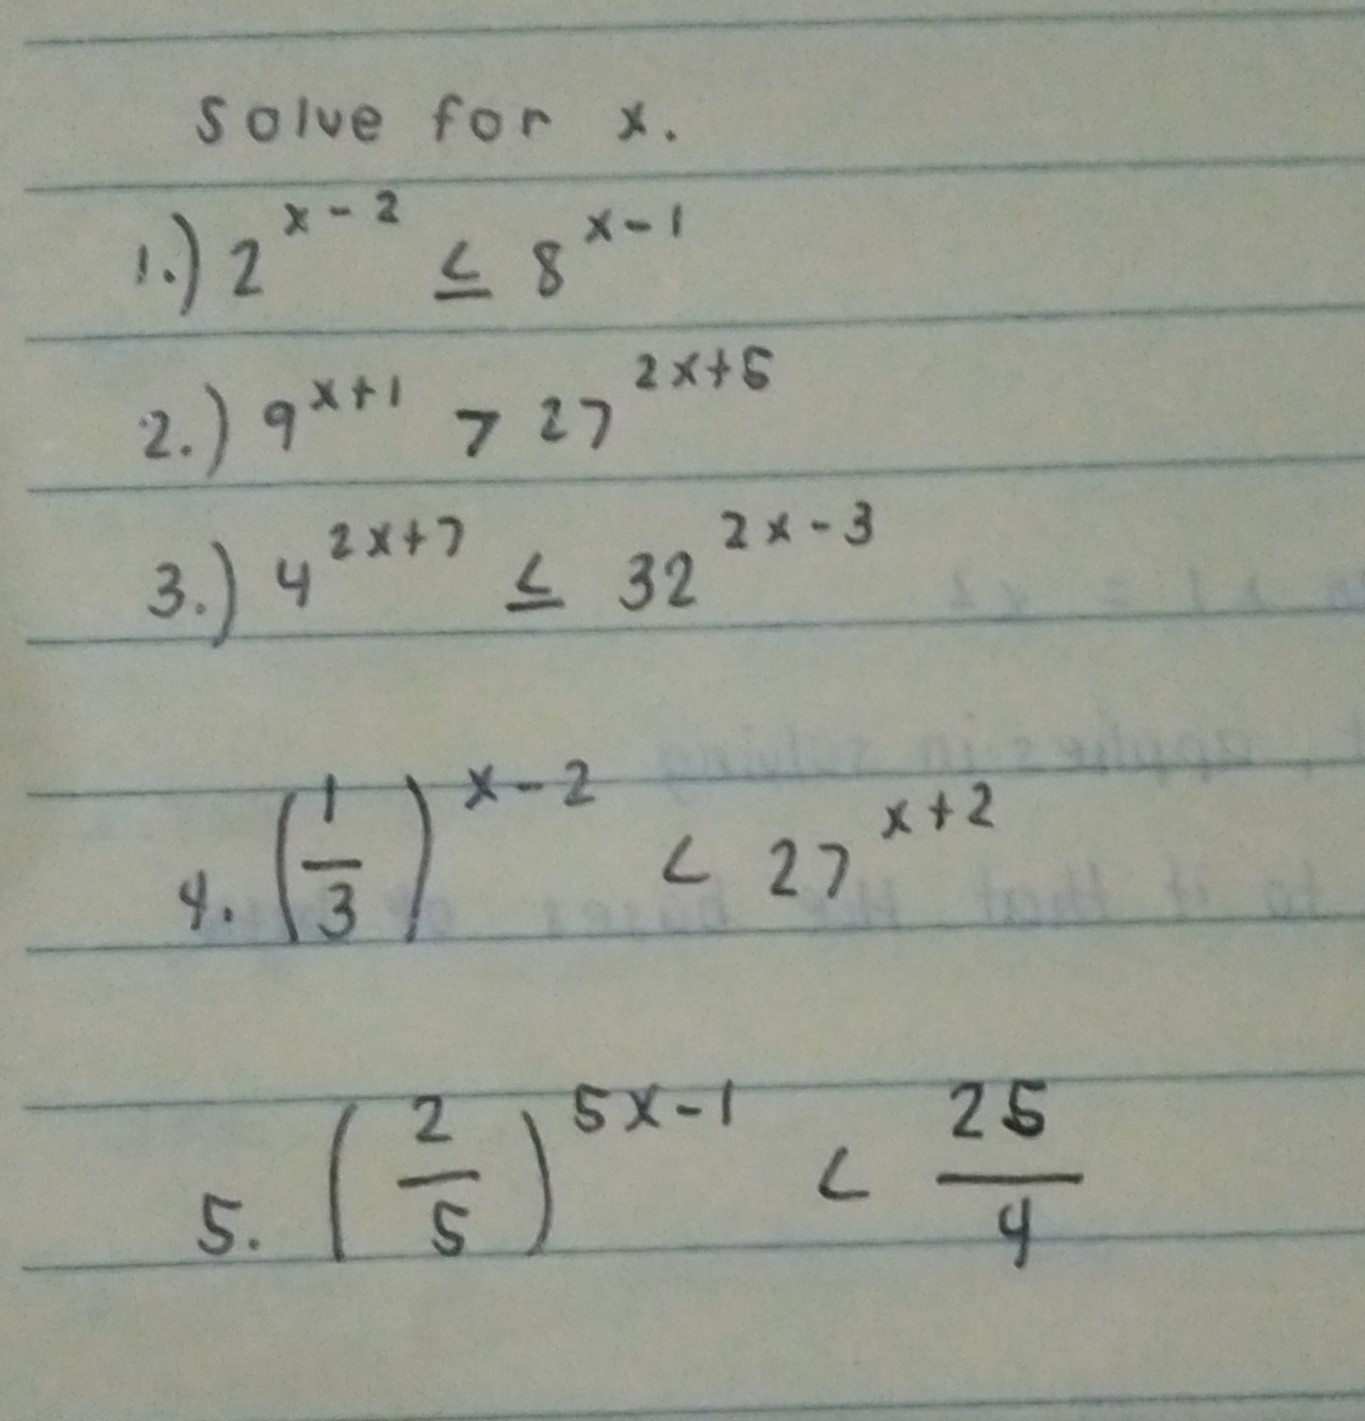 Solve for x.
1.) 2^{x-2} ≤ 8^{x-1}
2.) 9^{x+1} > 27^{2x+5}
3.) 4^{2x+7} ≤ 32^{2x-3}
4. (1/3)^{x-2} < 27^{x+2}
5. (2/5)^{5x-1} < 25/4